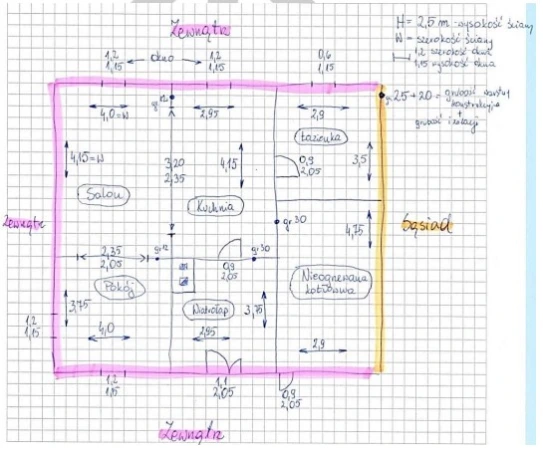 Zewnątrz
H = 2,5 m - wysokość ściany
W = szerokość ściany
1,2 szerokość okna
1,15 wysokość okna
1,2
1,15
okno
1,2
1,15
0,6
1,15
gr 25 + 20 = grubość warstwy
konstrukcyjnej
grubość izolacji
gr 12
4,0=W
2,95
2,9
Łazienka
4,15=W
3,20
2,35
4,15
0,9
2,05
3,5
Salon
Kuchnia
gr 30
4,75
Zewnątrz
Sąsiad
2,35
2,05
gr 12
gr 30
0,9
2,05
Pokój
Nieogrzewana
kotłownia
3,75
Wiatrołap
3,75
1,2
1,15
4,0
2,95
2,9
1,2
1,15
1,1
2,05
0,9
2,05
Zewnątrz